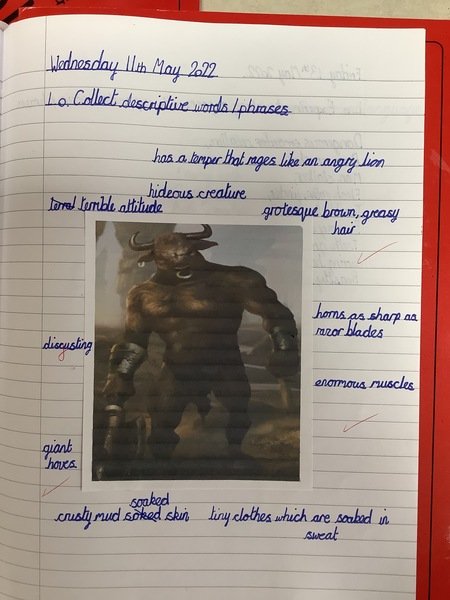 Wednesday 11th May 2022
L.O. Collect descriptive words/phrases
has a temper that rages like an angry lion
hideous creature
terrel terrible attitude
grotesque brown, greasy
hair
horns as sharp as
razor blades
disgusting
enormous muscles
giant
hoves
soaked
crusty mud soked skin
tiny clothes which are soaked in
sweat